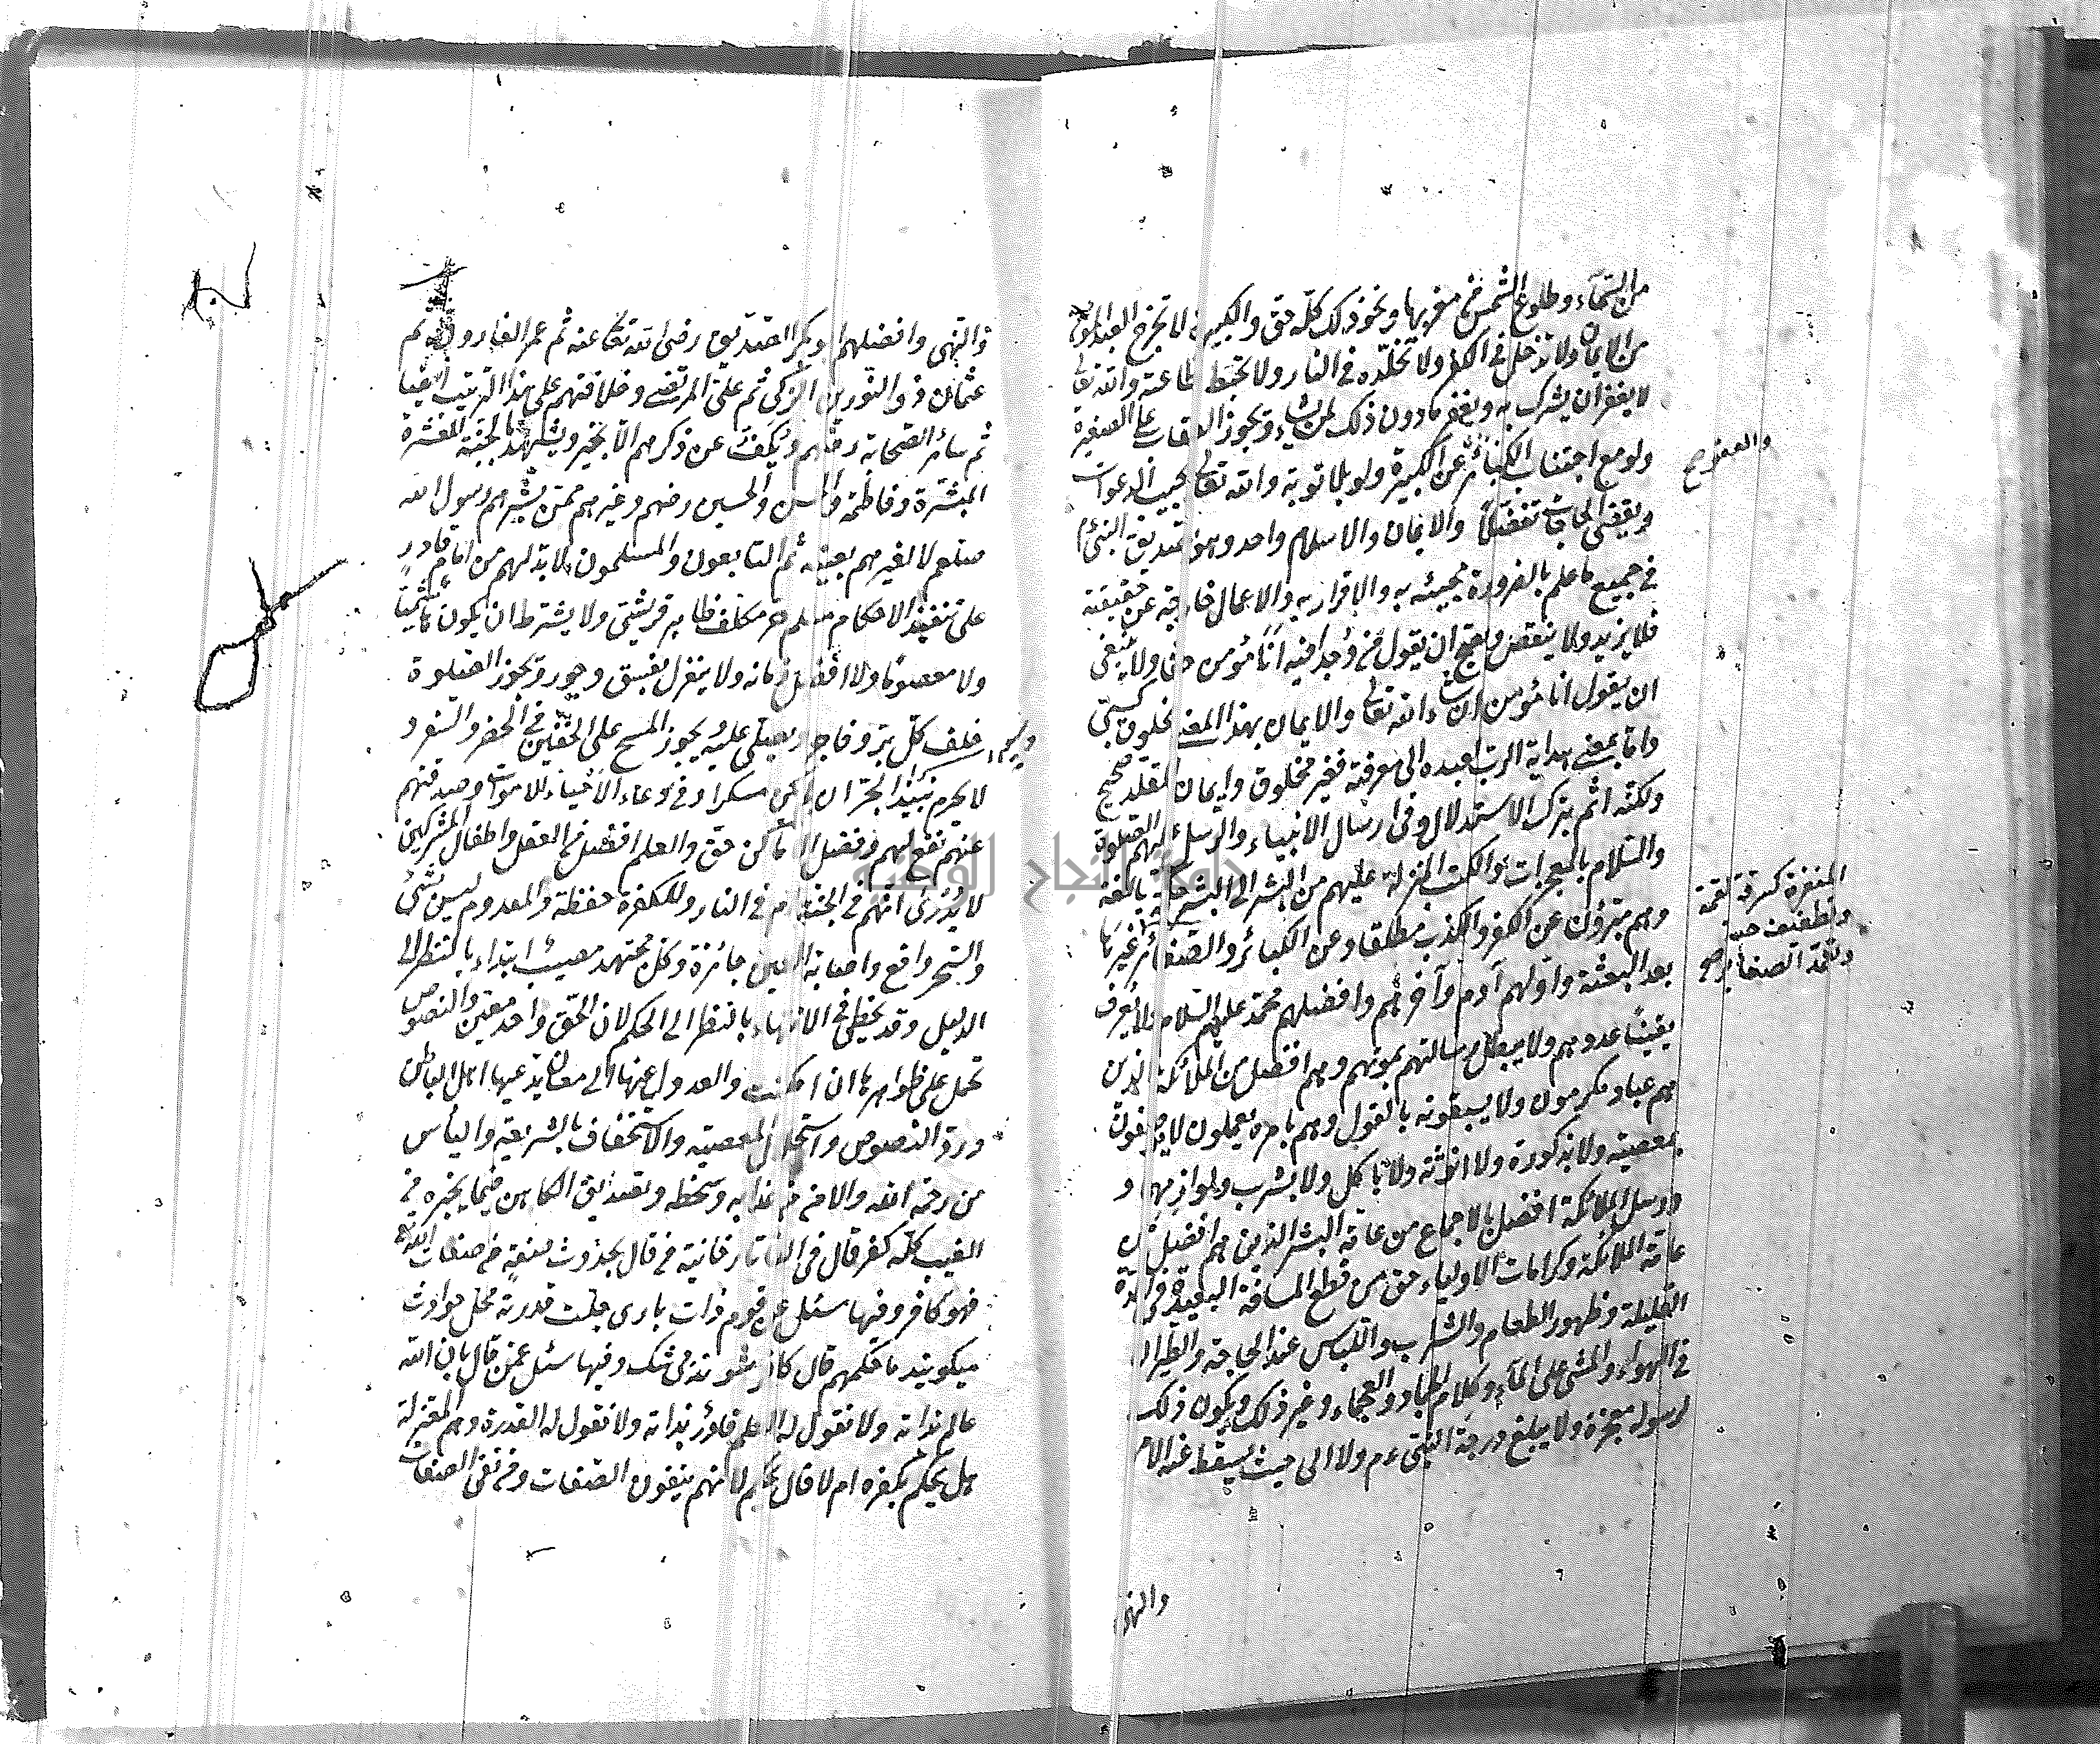 من السماء وطلوع الشمس من مغربها ونحو ذلك كله حق والكبيرة لا تخرج العبد المؤمن
من الايمان ولا تدخل في الكفر ولا تخلده في النار ولا تحبط طاعته والله تعالى
لا يغفر ان يشرك به ويغفر ما دون ذلك لمن يشاء ويجوز العقاب على الصغيرة
ولو مع اجتناب الكبائر عن الكبيرة ولو بلا توبة والله تعالى يجيب الدعوات
والعفو صح
ويقضي الحاجات تفضلا والايمان والاسلام واحد وهو تصديق النبي عم
في جميع ما علم بالضرورة مجيئه به والاقرار به والاعمال خارجة عن حقيقته
فلا يزيد ولا ينقص ويصح ان يقول من وجدا فيه انا مؤمن حقا ولا ينبغي
ان يقول انا مؤمن ان شاء الله تعالى والايمان بهذا المعنى مخلوق كسبي
واما بمعنى هداية الرب لعبده الى معرفته فغير مخلوق وايمان المقلد صحيح
ولكنه اثم بترك الاستدلال وفي ارسال الانبياء والرسل عليهم الصلوة
والسلام بالمعجزات والكتب المنزلة عليهم من البشر الى البشر حكمة بالغة
وهم مبرؤن عن الكفر والكذب مطلقا وعن الكبائر والصغائر غيرها
المنفرة كسرقة لقمة
وتطفيف حبة
وتعمد الصغاير صح
بعد البعثة واولهم آدم وآخرهم وافضلهم محمد عليهم السلام ولا يعرف
يقينا عددهم ولا يبطل رسالتهم بموتهم وهم افضل من الملائكة الذين
هم عباد مكرمون ولا يسبقونه بالقول وهم بامره يعملون لا يوصفون
بمعصية ولا بذكورة ولا انوثة ولا باكل ولا بشرب ولوازمها و
ورسل الملائكة افضل بالاجماع من عامة البشر الذين هم افضل من
عامة الملائكة وكرامات الاولياء حق من قطع المسافة البعيدة في المدة
القليلة وظهور الطعام والشراب واللباس عند الحاجة والطيران
في الهواء والمشي على الماء وكلام الجماد والعجماء وغير ذلك ويكون ذلك
لرسوله معجزة ولا يبلغ درجة النبي عم ولا الى حيث يسقط عنه الامر
والنهي
والنهي وافضلهم ابو بكر الصديق رضي الله تعالى عنه ثم عمر الفاروق ثم
عثمان ذو النورين الزكي ثم علي المرتضى وخلافتهم على هذا الترتيب ايضا
ثم سائر الصحابة رضهم ويكف عن ذكرهم الا بخير ويشهد بالجنة للعشرة
المبشرة وفاطمة والحسن والحسين رضهم وغيرهم ممن بشرهم رسول الله
صلعم لا لغيرهم بعينه ثم التابعون والمسلمون لا بد لهم من امام قادر
على تنفيذ الاحكام مسلم حر مكلف ظاهر قريشي ولا يشترط ان يكون هاشميا
ولا معصوما ولا افضل زمانه ولا ينعزل بفسق وجور وتجوز الصلوة
خلف كل بر وفاجر ويصلى عليه ويجوز المسح على الخفين في الحضر والسفر و
لا يحرم نبيذ الجر ان لم يكن مسكرا وفي دعاء الاحياء للاموات وصدقتهم
عنهم نفع لهم وفضل الاماكن حق والعلم افضل من العقل واطفال المشركين
لا يدرى انهم في الجنة ام في النار وللكفرة حفظة والمعدوم ليس بشئ
والسحر واقع واصابة العين جائزة وكل مجتهد مصيب ابتداء بالنظر الى
الدليل وقد يخطئ في الانتهاء بالنظر الى الحكم لان الحق واحد معين والنصوص
تحمل على ظواهرها ان امكنت والعدول عنها الى معان يدعيها اهل الباطن
ورد النصوص واستحلال المعصية والاستخفاف بالشريعة واليأس
من رحمة الله والامن من عذابه وسخطه وتصديق الكاهن فيما يخبره في
الغيب كله كفر قال في التاتارخانية من قال بحدوث صفة من صفات الله تعالى
فهو كافر وفيها سئل عن قوم ذات بارى جلت قدرته محل حوادث
ميكويند ما حكمهم قال كافر شوند بى شك وفيها سئل عمن قال بان الله
عالم بذاته ولا نقول له العلم قادر بذاته ولا نقول له القدرة وهم المعتزلة
هل يحكم بكفره ام لا قال يحكم لانهم ينفون الصفات ومن نفى الصفات
جامعة النجاح الوطنية